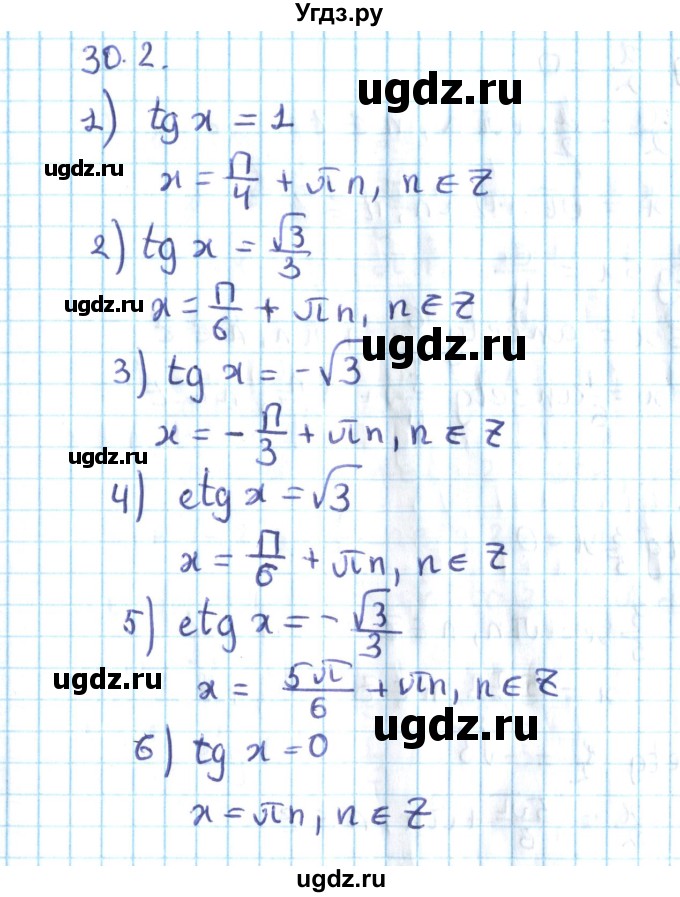 Угдз.ру
30.2.
ugdz.ru
1) tg x = 1
ugdz.ru
x = П/4 + πn, n ∈ Z
2) tg x = √3/3
ugdz.ru
x = П/6 + πn, n ∈ Z
ugdz.ru
3) tg x = -√3
x = - П/3 + πn, n ∈ Z
ugdz.ru
4) ctg x = √3
x = П/6 + πn, n ∈ Z
5) ctg x = - √3/3
ugdz.ru
x = 5π/6 + πn, n ∈ Z
ugdz.ru
6) tg x = 0
x = πn, n ∈ Z
ugdz.ru